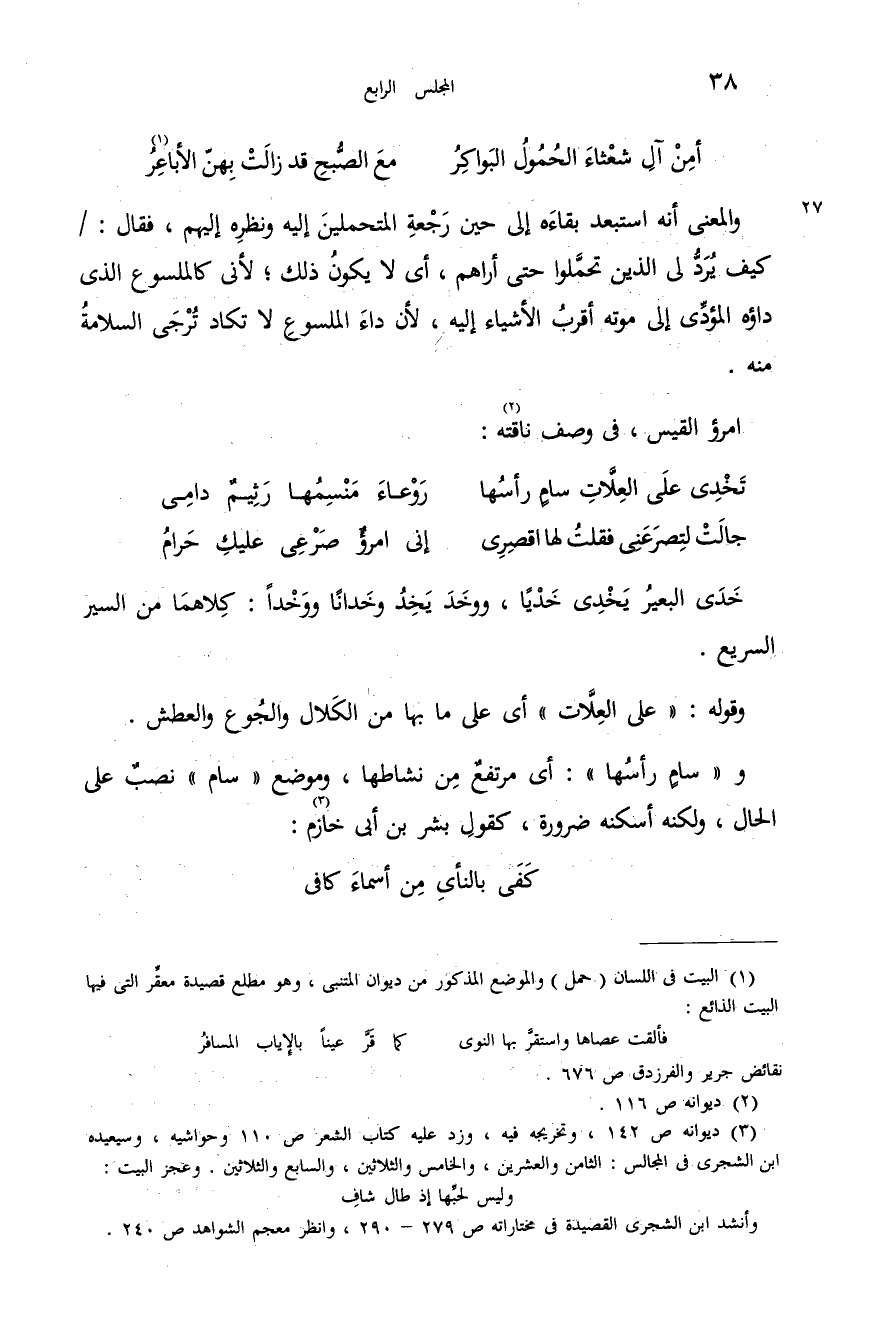 ٣٨
المجلس الرابع
أمِنْ آلِ شعْثاءَ الحُمُولُ البَواكِرُ مَعَ الصُّبحِ قد زالَتْ بِهنّ الأباعِرُ(١)
٢٧
والمعنى أنه استبعد بقاءَه إلى حين رَجْعةِ المتحملينَ إليه ونظرِه إليهم ، فقال : /
كيف يُرَدُّ لى الذين تحمَّلوا حتى أراهم ، أى لا يكونُ ذلك ؛ لأنى كالملسوع الذى
داؤه المؤدِّى إلى موته أقربُ الأشياء إليه ، لأن داءَ الملسوع لا تكاد تُرْجَى السلامةُ
منه .
امرؤ القيس ، فى وصف ناقته(٢) :
تَخْدِى علَى العِلَّاتِ سامٍ رأسُها رَوْعاءَ مَنْسِمُها رَثِيمٌ دامِى
جالَتْ لِتصرَعَنِى فقلتُ لها اقصِرِى إنى امرؤٌ صَرْعِى عليكِ حَرامُ
خَدَى البعيرُ يَخْدِى خَدْيًا ، ووخَدَ يَخِدُ وخَدانًا ووَخْداً : كِلاهمَا من السير
السريع .
وقوله : « على العِلَّات » أى على ما بها من الكَلال والجُوع والعطش .
و « سامٍ رأسُها » : أى مرتفعٌ مِن نشاطها ، وموضع « سام » نصبٌ على
الحال ، ولكنه أسكنه ضرورة ، كقولِ بشر بن أبى خازم(٣) :
كَفَى بالنأىِ مِن أسماءَ كافى
(١) البيت فى اللسان ( حمل ) والموضع المذكور من ديوان المتنبى ، وهو مطلع قصيدة معقِّر التى فيها
البيت الذائع :
فألقت عصاها واستقرَّ بها النوى كما قَرَّ عيناً بالإياب المسافرُ
نقائض جرير والفرزدق ص ٦٧٦ .
(٢) ديوانه ص ١١٦ .
(٣) ديوانه ص ١٤٢ ، وتخريجه فيه ، وزد عليه كتاب الشعر ص ١١٠ وحواشيه ، وسيعيده
ابن الشجرى فى المجالس : الثامن والعشرين ، والخامس والثلاثين ، والسابع والثلاثين . وعجز البيت :
وليس لحبِّها إذ طال شافِ
وأنشد ابن الشجرى القصيدة فى مختاراته ص ٢٧٩ – ٢٩٠ ، وانظر معجم الشواهد ص ٢٤٠ .